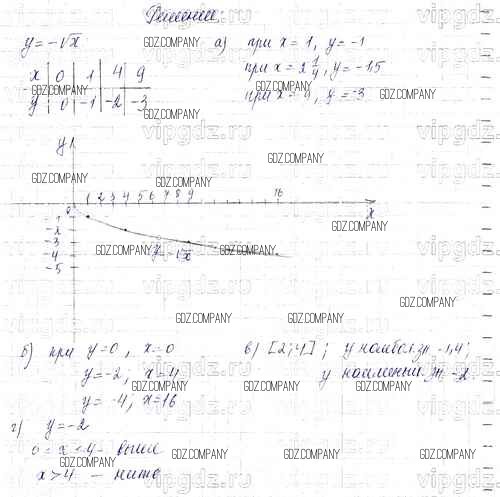 Решение:
y = -√x
x | 0 | 1 | 4 | 9
y | 0 | -1 | -2 | -3
а) при x = 1, y = -1
при x = 2 1/4, y = -1,5
при x = 9, y = -3
y
1 2 3 4 5 6 7 8 9 16
x
0
-1
-2
-3
-4
-5
y = -√x
б) при y = 0, x = 0
y = -2; x = 4
y = -4; x = 16
в) [2; 4]; y наибол. зн -1,4;
y наименьш. зн -2
г) y = -2
0 = x < 4 - выше
x > 4 -
GDZ.COMPANY
vipgdz.ru